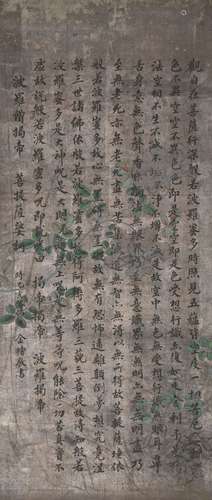 觀自在菩薩行深般若波羅蜜多時照見五蘊皆空度一切苦厄舍利子
色不異空空不異色色即是空空即是色受想行識亦復如是舍利子是諸
法空相不生不滅不垢不淨不增不減是故空中無色無受想行識無眼耳鼻
舌身意無色聲香味觸法無眼界乃至無意識界無無明亦無無明盡乃
至無老死亦無老死盡無苦集滅道無智亦無得以無所得故菩提薩埵依
般若波羅蜜多故心無罣礙無罣礙故無有恐怖遠離顛倒夢想究竟涅
槃三世諸佛依般若波羅蜜多故得阿耨多羅三藐三菩提故知般若
波羅蜜多是大神咒是大明咒是無上咒是無等等咒能除一切苦真實不
虛故說般若波羅蜜多咒即說咒曰 揭帝揭帝 波羅揭帝
波羅僧揭帝 菩提薩婆訶